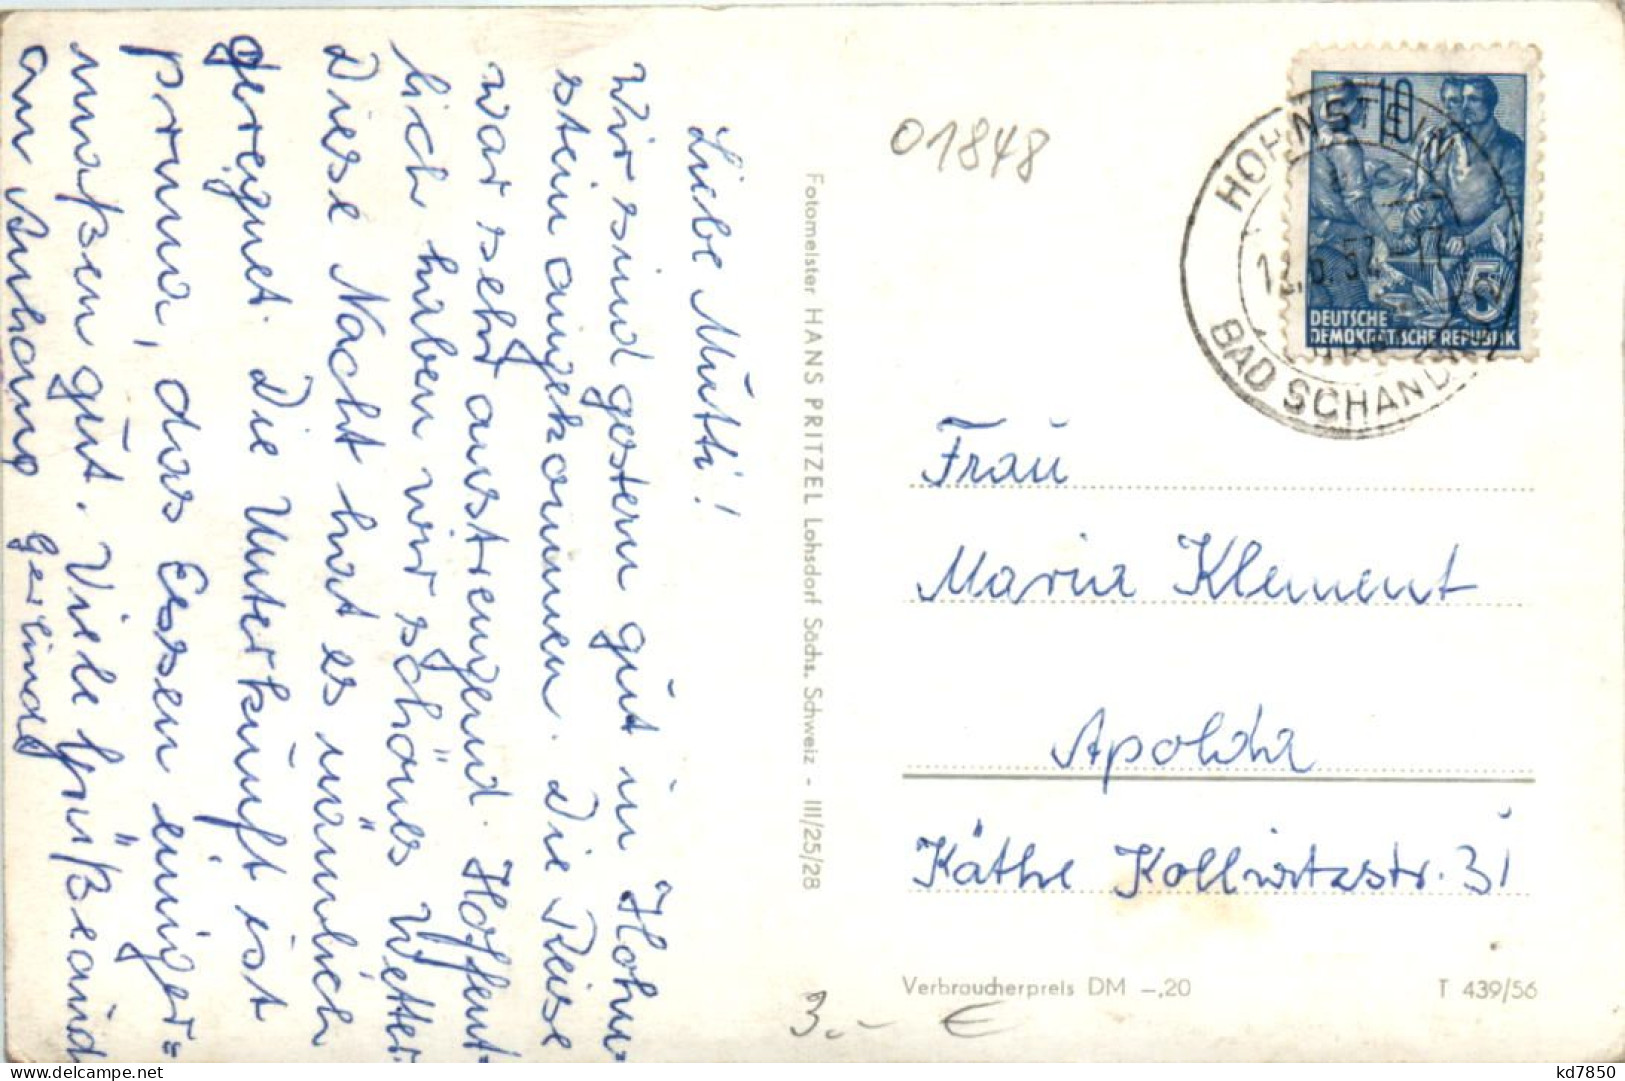 Liebe Mutti!
Wir sind gestern gut in Hohn-
stein angekommen. Die Reise
war sehr anstrengend. Hoffent-
lich haben wir schönes Wetter.
Diese Nacht hat es nämlich
geregnet. Die Unterkunft ist
prima, das Essen einiger=
maßen gut. Viele Grüße auch
am Anhang Gerlinde
Fotomeister HANS PRITZEL Lohsdorf Sächs. Schweiz - III/25/28
01848
HOHNSTEIN
BAD SCHANDAU
10
5
DEUTSCHE
DEMOKRATISCHE REPUBLIK
Frau
Maria Klement
Apolda
Käthe Kollwitzstr. 31
Verbraucherpreis DM –,20
T 439/56
3.- €
kd7850